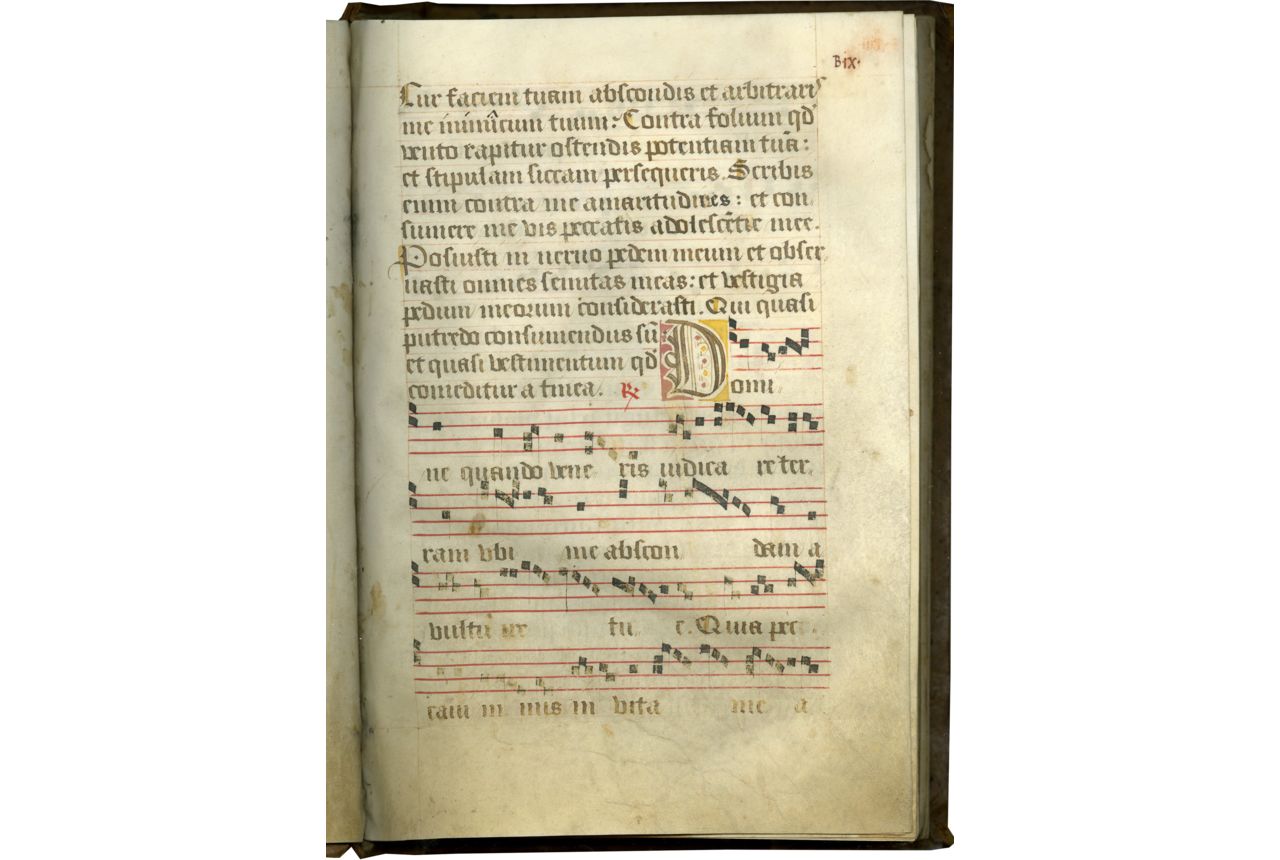 B·ix·
Cur faciem tuam abscondis et arbitraris
me inimicum tuum: Contra folium qđ
vento rapitur ostendis potentiam tuā:
et stipulam siccam persequeris. Scribis
enim contra me amaritudines: et con
sumere me vis peccatis adolescētie mee.
Posuisti in neruo pedem meum et obser
uasti omnes semitas meas: et vestigia
pedum meorum considerasti. Qui quasi
putredo consumendus sū
et quasi vestimentum qđ
comeditur a tinea. ℟ Domi
ne quando vene ris iudica re ter
ram vbi me abscon dam a
vultu ire tu e. Quia pec
caui ni mis in vita me a